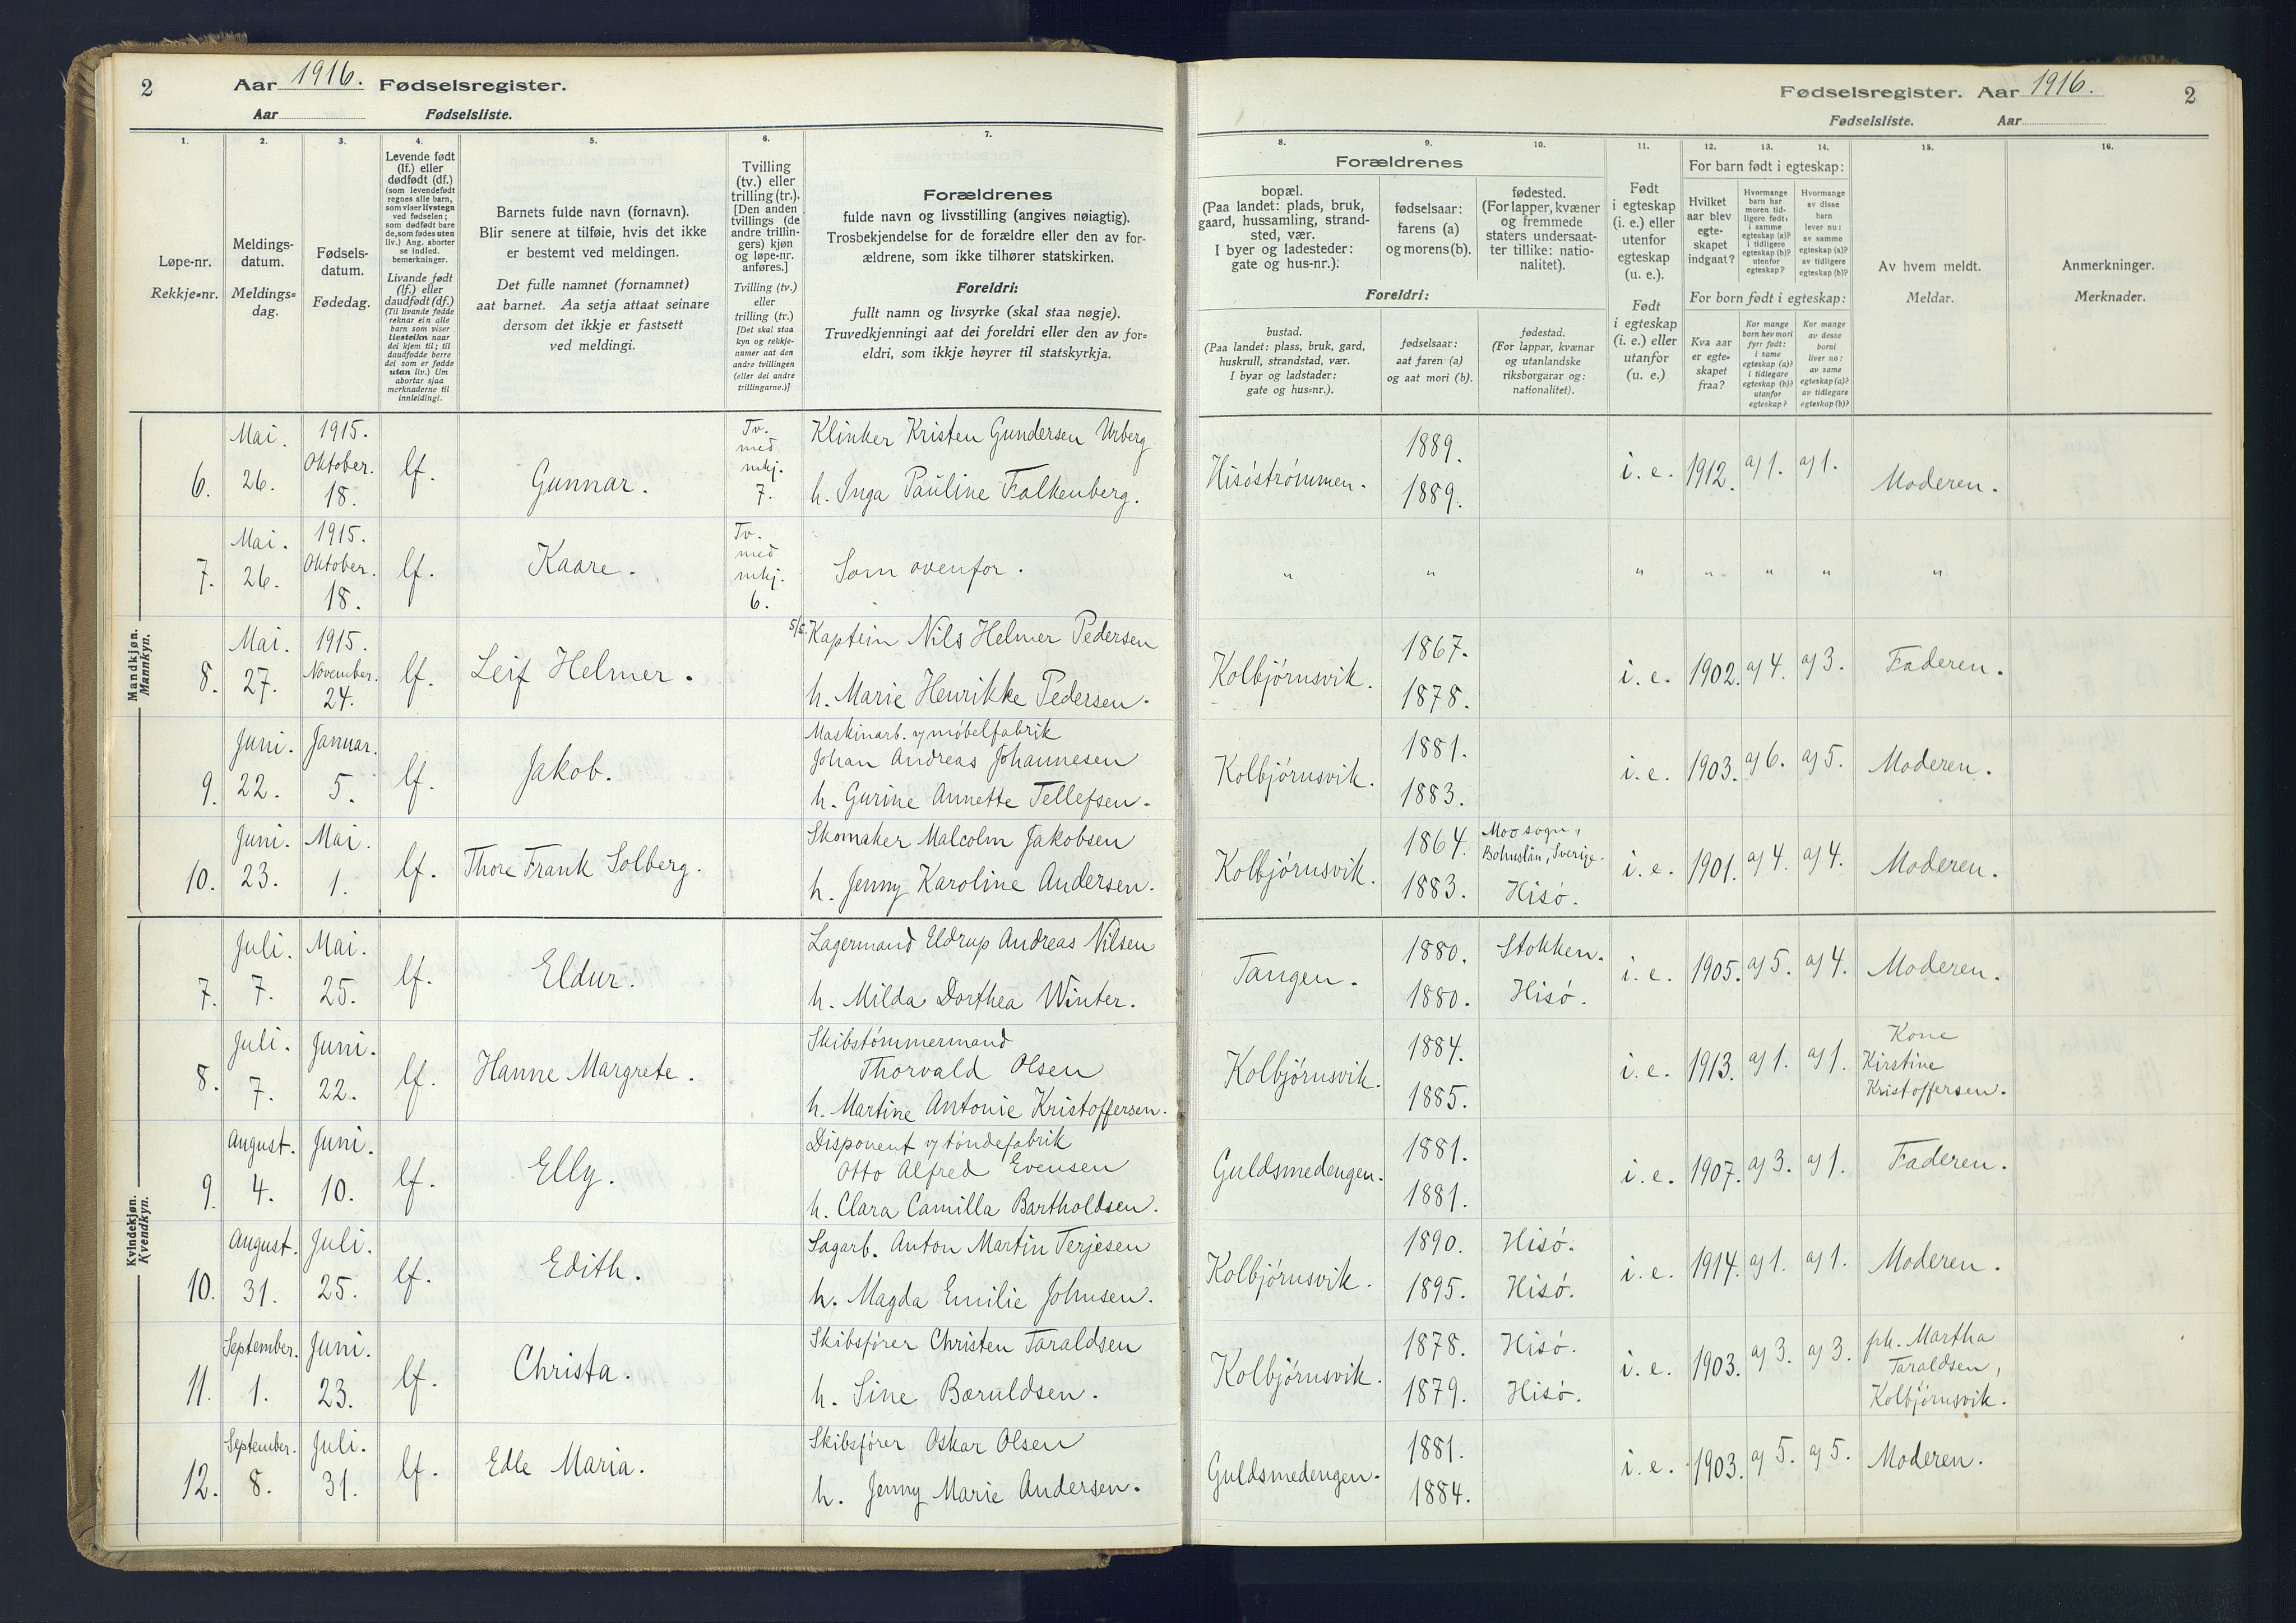 2
Aar 1916. Fødselsregister.
Aar
Fødselsliste.
Fødselsregister. Aar 1916.
2
Fødselsliste.
Aar
1.
Løpe-nr.
Rekkje-nr.
2.
Meldings-
datum.
Meldings-
dag.
3.
Fødsels-
datum.
Fødedag.
4.
Levende født
(lf.) eller
dødfødt (df.)
(som levendefødt
regnes alle barn,
som viser livstegn
ved fødselen;
som dødfødt bare
de, som fødes uten
liv.) Ang. aborter
se indled.
bemerkninger.
Livande født
(lf.) eller
daudfødt (df.)
(Til livande fødde
reknar ein alle
barn som viser
livsteikn naar
dei kjem til; til
daudfødde berre
dei som er fødde
utan liv.) Um
abortar sjaa
merknaderne til
innleidingi.
5.
Barnets fulde navn (fornavn).
Blir senere at tilføie, hvis det ikke
er bestemt ved meldingen.
Det fulle namnet (fornamnet)
aat barnet. Aa setja attaat seinare
dersom det ikkje er fastsett
ved meldingi.
6.
Tvilling
(tv.) eller
trilling (tr.).
[Den anden
tvillings (de
andre trillin-
gers) kjøn
og løpe-nr.
anføres.]
Tvilling (tv.)
eller
trilling (tr.)
[Det skal staa
kyn og rekkje-
numer aat den
andre tvillingen
(eller dei andre
trillingarne.)]
7.
Forældrenes
fulde navn og livsstilling (angives nøiagtig).
Trosbekjendelse for de forældre eller den av for-
ældrene, som ikke tilhører statskirken.
Foreldri:
fullt namn og livsyrke (skal staa nøgje).
Truvedkjenningi aat dei foreldri eller den av for-
eldri, som ikkje høyrer til statskyrkja.
Forældrenes
8.
bopæl.
(Paa landet: plads, bruk,
gaard, hussamling, strand-
sted, vær.
I byer og ladesteder:
gate og hus-nr.).
9.
fødselsaar:
farens (a)
og morens (b).
10.
fødested.
(For lapper, kvæner
og fremmede
staters undersaat-
ter tillike: natio-
nalitet).
Foreldri:
bustad.
(Paa landet: plass, bruk, gard,
huskrull, strandstad, vær.
I byar og ladstader:
gate og hus-nr.).
fødselsaar:
aat faren (a)
og aat mori (b).
fødestad.
(For lappar, kvænar
og utanlandske
riksborgarar og:
nationalitet).
11.
Født
i egteskap
(i. e.) eller
utenfor
egteskap
(u. e.).
Født
i egteskap
(i. e.) eller
utanfor
(u. e.)
12.
13.
14.
For barn født i egteskap:
Hvilket
aar blev
egte-
skapet
indgaat?
Hvormange
barn har
moren tid-
ligere født:
i samme
egteskap (a)?
i tidligere
egteskap (b)?
utenfor
egteskap?
Hvormange
av disse
barn
lever nu:
av samme
egteskap (a)?
av tidligere
egteskap (b)?
For born født i egteskap:
Kva aar
er egte-
skapet
fraa?
Kor mange
born hev mori
fyrr født:
i same
egteskap (a)?
i tidlegare
egteskap (b)?
utanfor
egteskap?
Kor mange
av desse
borni
liver no:
av same
egteskap (a)?
av tidlegare
egteskap (b)?
15.
Av hvem meldt.
Meldar.
16.
Anmerkninger.
Merknader.
Mandkjøn.
Mannkyn.
6. Mai. 26. 1915. Oktober. 18. lf. Gunnar. Tv. med mkj. 7. Klinker Kristen Gundersen Urberg
h. Inga Pauline Falkenberg. Hisöströmmen. 1889. 1889. i. e. 1912. a) 1. a) 1. Moderen.
7. Mai. 26. 1915. Oktober. 18. lf. Kaare. Tv. med mkj. 6. Som ovenfor. " " " " " " "
8. Mai. 27. 1915. November. 24. lf. Leif Helmer. Kaptein Nils Helmer Pedersen
h. Marie Henrikke Pedersen. Kolbjörnsvik. 1867. 1878. i. e. 1902. a) 4. a) 3. Faderen.
9. Juni. 22. Januar. 5. lf. Jakob. Maskinarb. v/ möbelfabrik
Johan Andreas Johannesen
h. Gurine Annette Tellefsen. Kolbjörnsvik. 1881. 1883. i. e. 1903. a) 6. a) 5. Moderen.
10. Juni. 23. Mai. 1. lf. Thore Frank Solberg. Skomaker Malcolm Jakobsen
h. Jenny Karoline Andersen. Kolbjörnsvik. 1864. 1883. Moo sogn, Bohuslän, Sverige. Hisö. i. e. 1901. a) 4. a) 4. Moderen.
Kvindekjøn.
Kvendkyn.
7. Juli. 7. Mai. 25. lf. Eldur. Lagermand Eldrup Andreas Nilsen
h. Milda Dorthea Winter. Tangen. 1880. 1880. Stokken. Hisö. i. e. 1905. a) 5. a) 4. Moderen.
8. Juli. 7. Juni. 22. lf. Hanne Margrete. Skibstömmermand
Thorvald Olsen
h. Martine Antonie Kristoffersen. Kolbjörnsvik. 1884. 1885. i. e. 1913. a) 1. a) 1. Kone Kirstine Kristoffersen.
9. August. 4. Juni. 10. lf. Elly. Disponent v/ töndefabrik
Otto Alfred Evensen
h. Clara Camilla Bartholdsen. Guldsmedengen. 1881. 1881. i. e. 1907. a) 3. a) 1. Faderen.
10. August. 31. Juli. 25. lf. Edith. Sagarb. Anton Martin Terjesen
h. Magda Emilie Johnsen. Kolbjörnsvik. 1890. 1895. Hisö. Hisö. i. e. 1914. a) 1. a) 1. Moderen.
11. September. 1. Juni. 23. lf. Christa. Skibsförer Christen Taraldsen
h. Sine Baruldsen. Kolbjörnsvik. 1878. 1879. Hisö. Hisö. i. e. 1903. a) 3. a) 3. frk. Martha Taraldsen, Kolbjörnsvik.
12. September. 8. Juli. 31. lf. Edle Maria. Skibsförer Oskar Olsen
h. Jenny Marie Andersen. Guldsmedengen. 1881. 1884. i. e. 1903. a) 5. a) 5. Moderen.